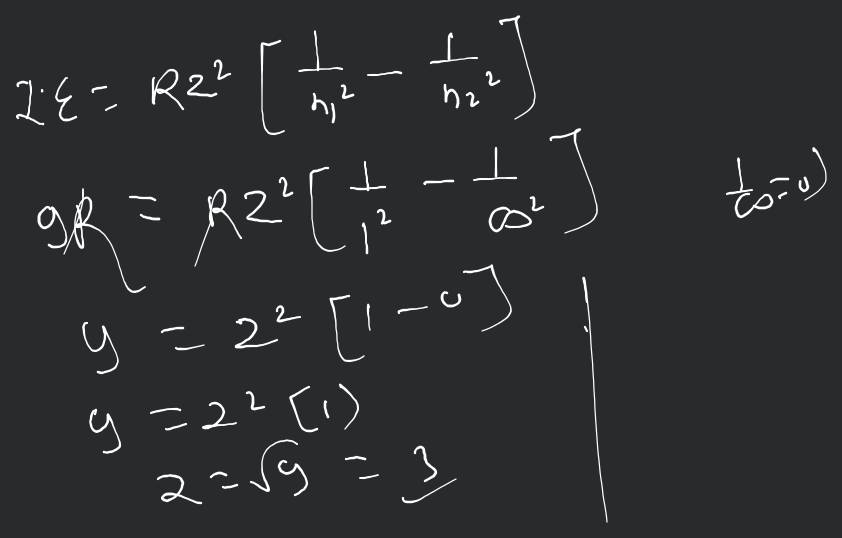 I.E = RZ² [1/n₁² − 1/n₂²]
9R = RZ² [1/1² − 1/∞²]
1/∞ = 0)
9 = Z² [1 − 0]
9 = Z² [1)
Z = √9 = 3